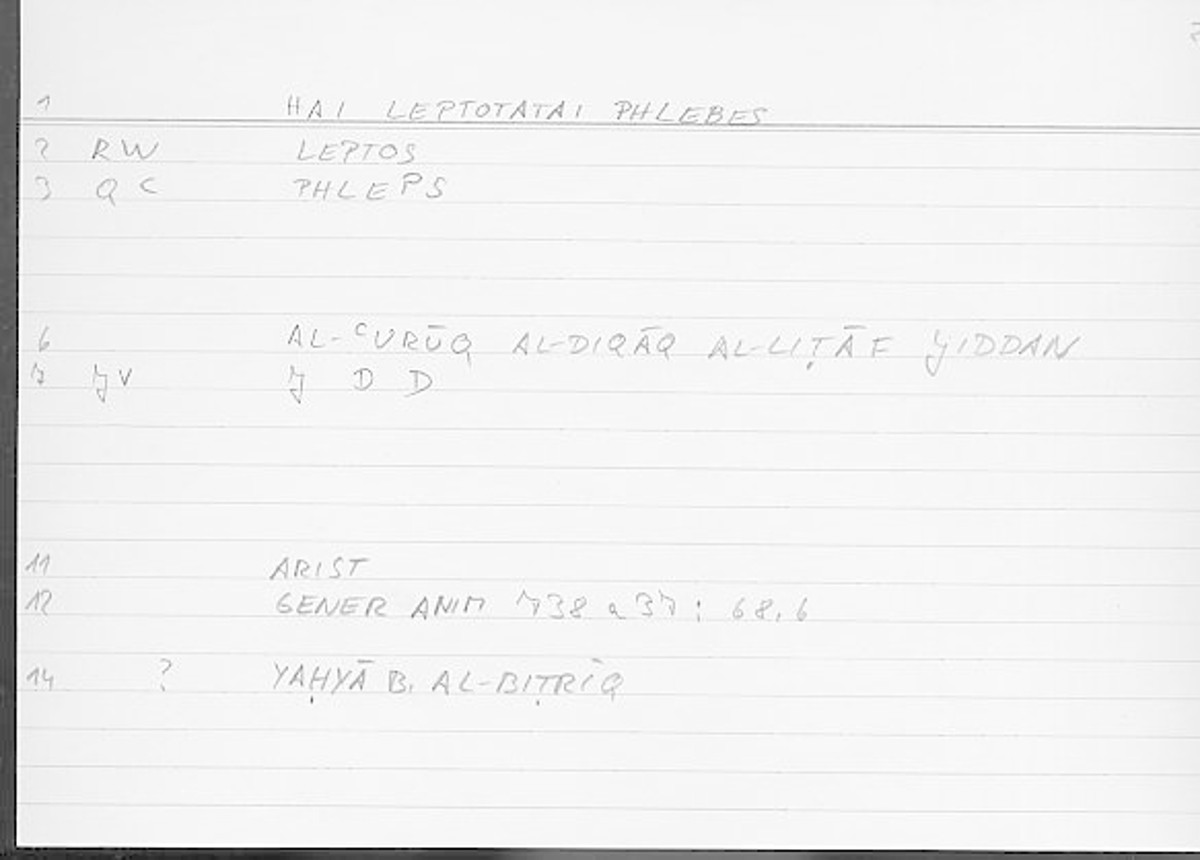 1 HAI LEPTOTATAI PHLEBES
2 RW LEPTOS
3 QC PHLEPS
6 AL-ʿURŪQ AL-DIQĀQ AL-LIṬĀF ǦIDDAN
7 ǦV Ǧ D D
11 ARIST
12 GENER ANIM 738 a 37; 68,6
14 ? YAḤYĀ B. AL-BIṬRĪQ